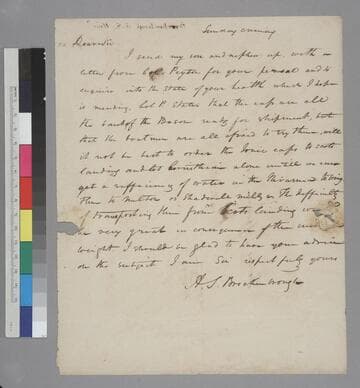 Sunday evening
Dear Sir
I send my son and nephew up, with a
letter from Col. Peyton for your perusal and to
enquire into the state of your health which I hope
is mending. Col P. States that the caps are all
the bank of the Bason ready for shipment, but
that the boatmen are all afraid to try them, will
it not be best to order the Ionic caps to Scotts
landing and let Corinthian alone until we can
get a sufficiency of water in the Rivanna to bring
them to Milton or Shadwell mills, as the difficulty
of transporting them from Scots landing wo
be very great in consequence of their
weight I should be glad to have your advice
on the subject I am Sir respectfuly yours
A. S. Brockenbrough